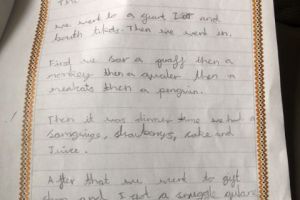 we went to a giant and
bouth tikds. Then we went in.
First we sor a giraff then a
monkey then a then a
meakats then a penguin.
Then it was dinner time we had a
Sangwige, strawburys, cake and
Juice.
After that we went to gift
and I got a